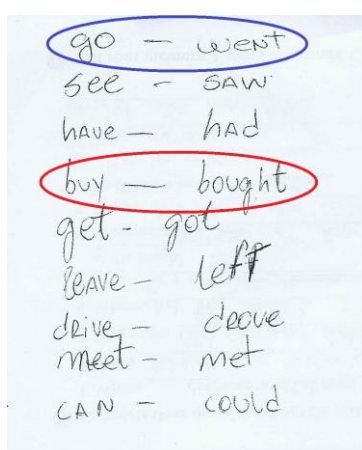 go - went
see - saw
have - had
buy - bought
get - got
leave - left
drive - drove
meet - met
can - could